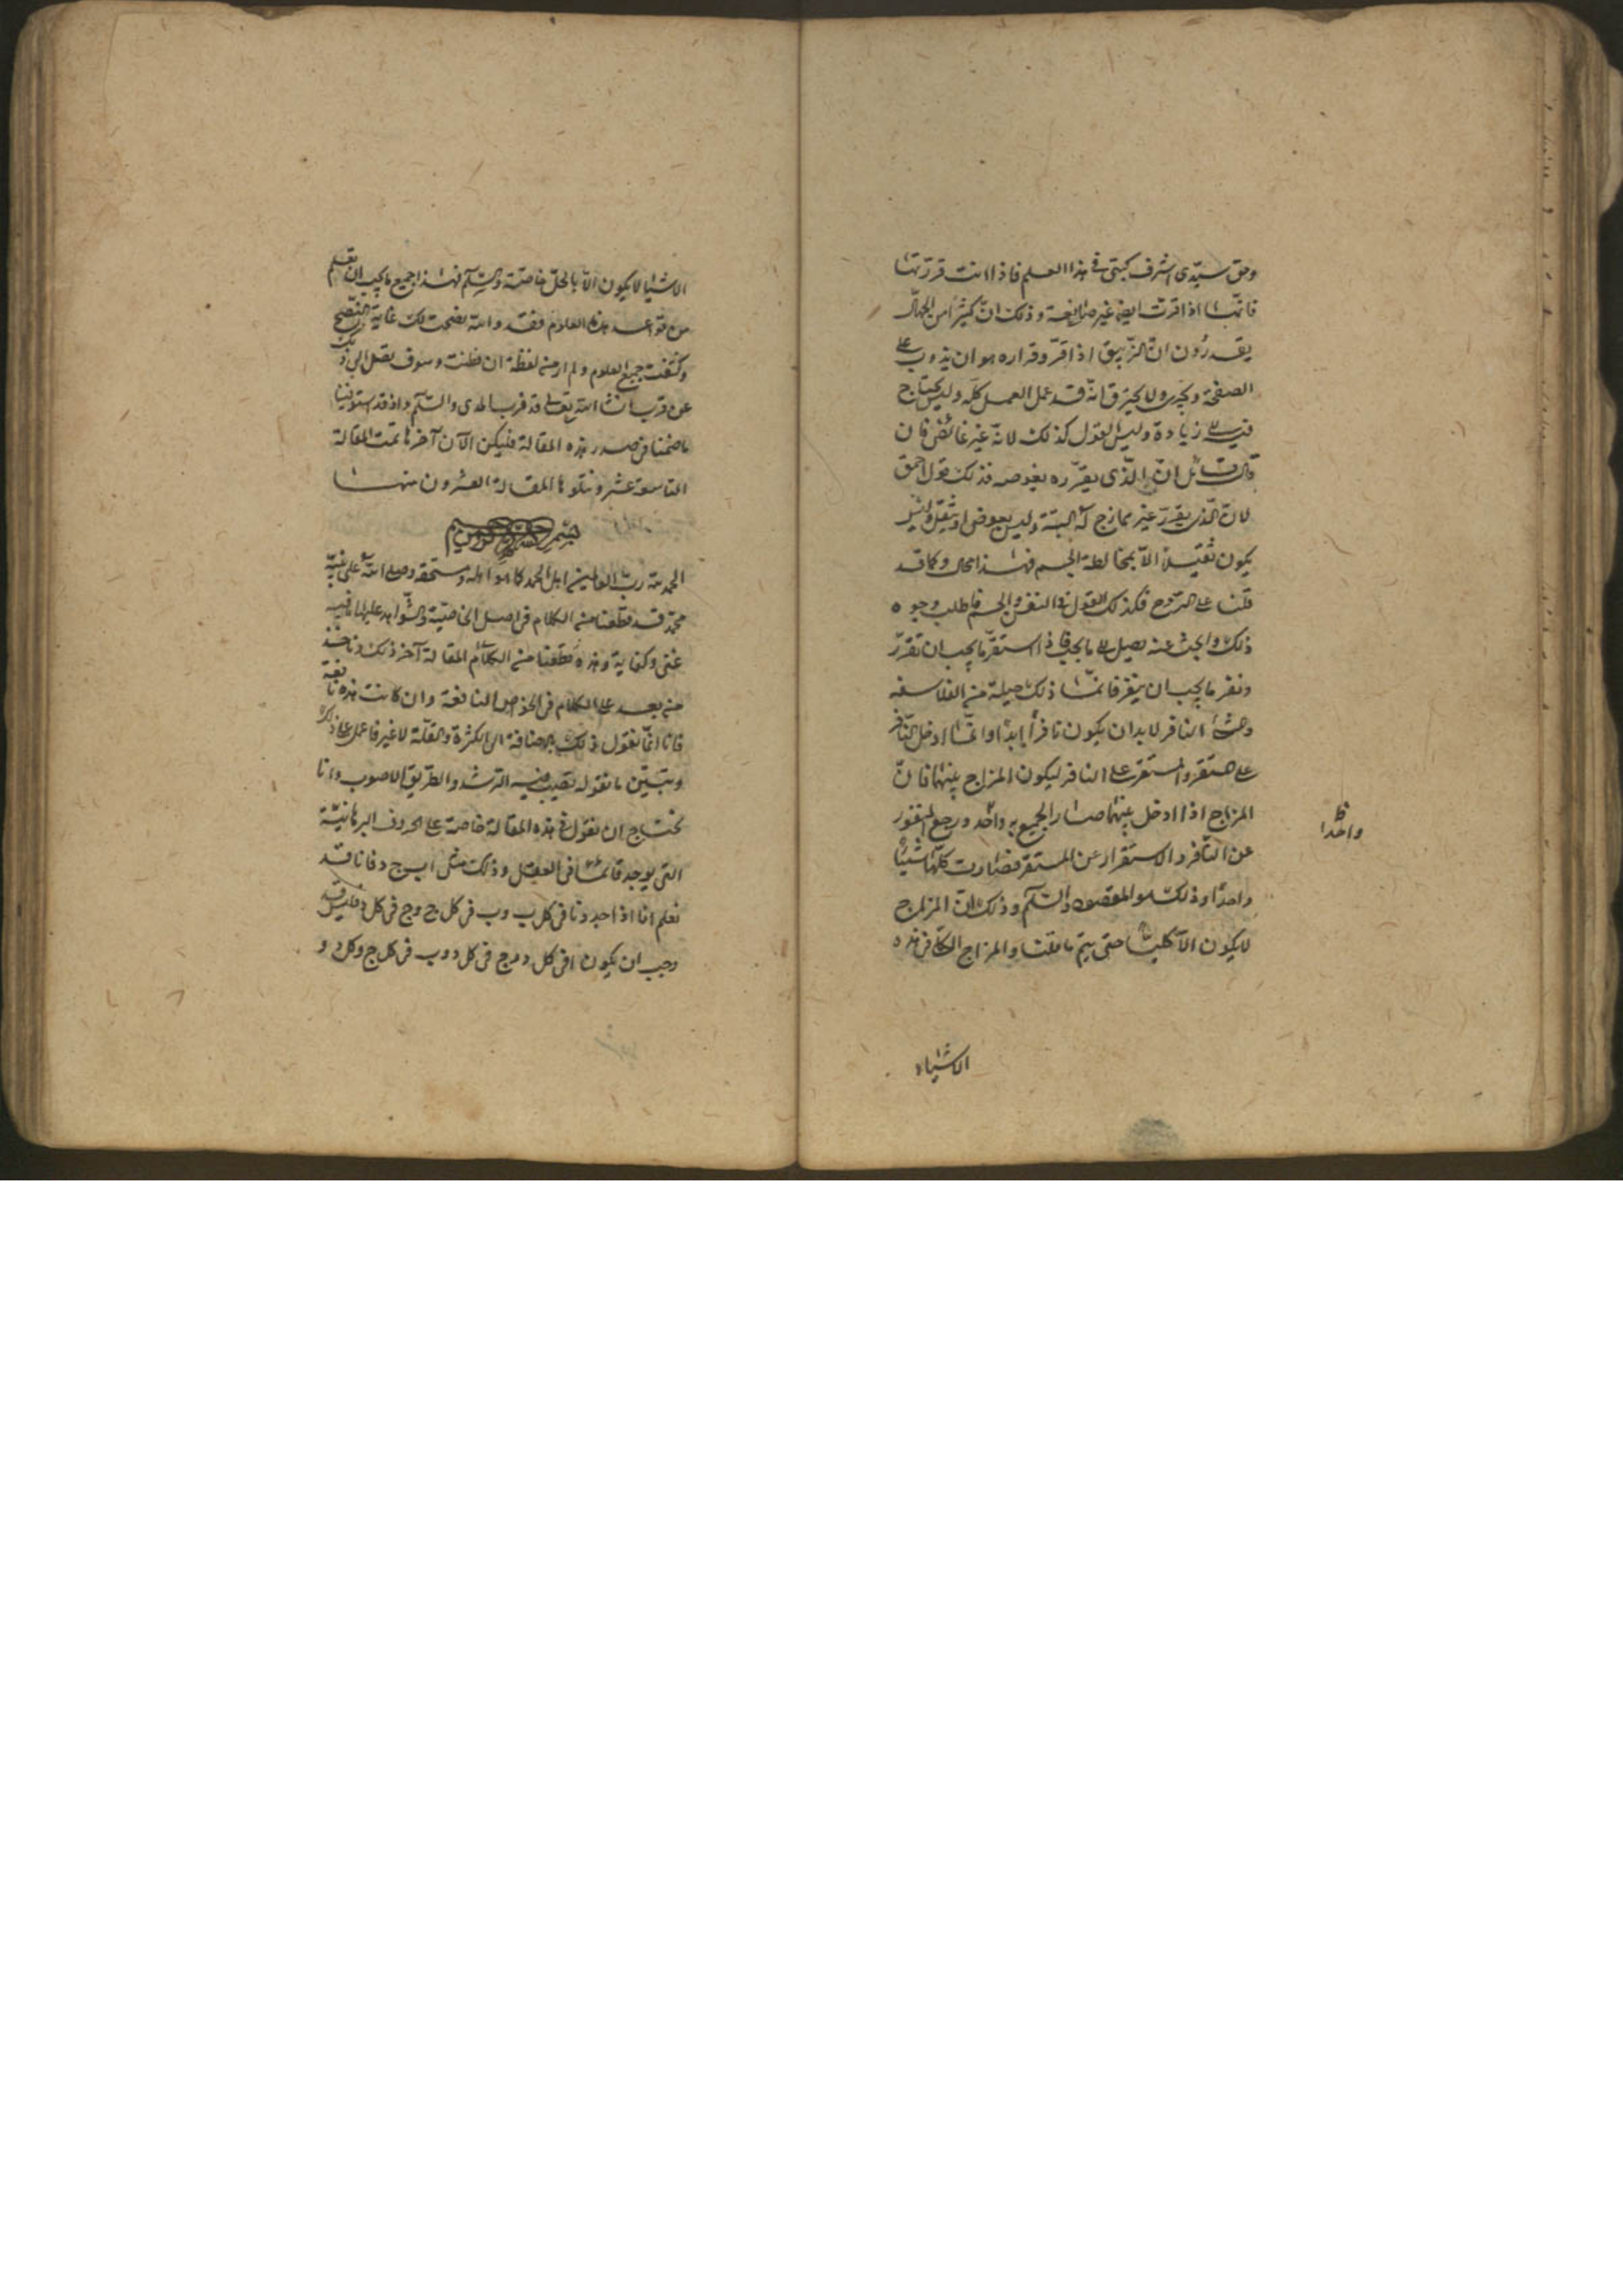 وحق سيّدى اشرف كتبتى فى هذا العلم فاذا انت قررتها
فانها اذا قرت ايضا غير صابغة وذلك انّ كثيراً من الجهال
يقدرون انّ الزيبق اذا قرّ وقراره هو ان يذوب على
الصفحة ويجرى ولا يحترق انّه قد عمل العمل كلّه وليس يحتاج
فيه الى زيادة وليس القول كذلك لانّه غير غائص فان
قال قائل انّ الّذى يقرّره يغوصه فذلك قول احمق
لانّ الّذى يقرّر غير ممازج له البتة وليس يغوص او يثقل وليس
يكون ثقيلاً الّا بمخالطة الجسم فهذا محال وكما قد
قلنا على الرّوح فكذلك القول فى النفس والجسم فاطلب وجوه
ذلك وابحث عنه تصل الى ما تحب فاذا استقرّ ما يجب ان تقرّر
ونفر ما يجب ان ينفر فانّما ذلك حيلة من الفلاسفه
وحشا النافر لا بد ان يكون نافراً ابداً وانّما ادخل النّافر
على المستقر والمستقر على النافر ليكون المزاج بينهما فانّ
المزاج اذا ادخل بينهما صار الجميع به واحد ورجع النفور
عن النّافر والاستقرار عن المستقر فصارت كلّها شيئاً
واحداً وذلك هو المقصود والسّلم وذلك انّ المزاج
لا يكون الّا كلياً حتى يتم ما قلنا والمزاج الكلّى فى هذه
ظ
واحدا
الاشياء
الاشيا لا يكون الّا بالحلّ خاصّة والسّلم فهذا جميع ما يجب ان تعلم
من قواعد هذه العلوم فقد والله نصحت لك غاية النّصح
وكشفت جميع العلوم ولم ارمز لفظة ان فطنت وسوف تصل الى ذلك
عن قريب ان شا الله تعالى قد قرب الهدى والسّلم واذ قد استوفينا
ما ضمنّا فى صدر هذه المقالة فليكن الآن آخرها تمت المقالة
التاسعة عشر ونتلوها المقالة العشرون منها
بسم الله الرحمن الرحيم
الحمد لله ربّ العالمين اهل الحمد كما هو اهله ومستحقه وصلى الله على نبيّه
محمّد قد قطعنا من الكلام فى اصل الخاصيّة والشّواهد عليها ما فيه
غنى وكفاية وهذه قطعنا من الكلام المقالة آخر ذلك وناخذ
من بعد على الكلام فى الخواص النافعة وان كانت هذه نافعة
فانا انّما نقول ذلك بالاضافة الى الكثرة والقلّة لا غير فاعمل على ذلك
وتبيّن ما نقوله تصيب فيه الرّشد والطريق الاصوب وانا
نحتاج ان نقول فى هذه المقالة خاصة على الحروف البرهانيّة
التى يوجد قائما فى العقل وذلك مثل ا ب ج د فانا قد
نعلم انا اذا وجدنا ا فى كل ب وب فى كل ج وج فى كل د فليس قد
وجب ان يكون ا فى كل د وج فى كل د وب فى كل ج وكل د و